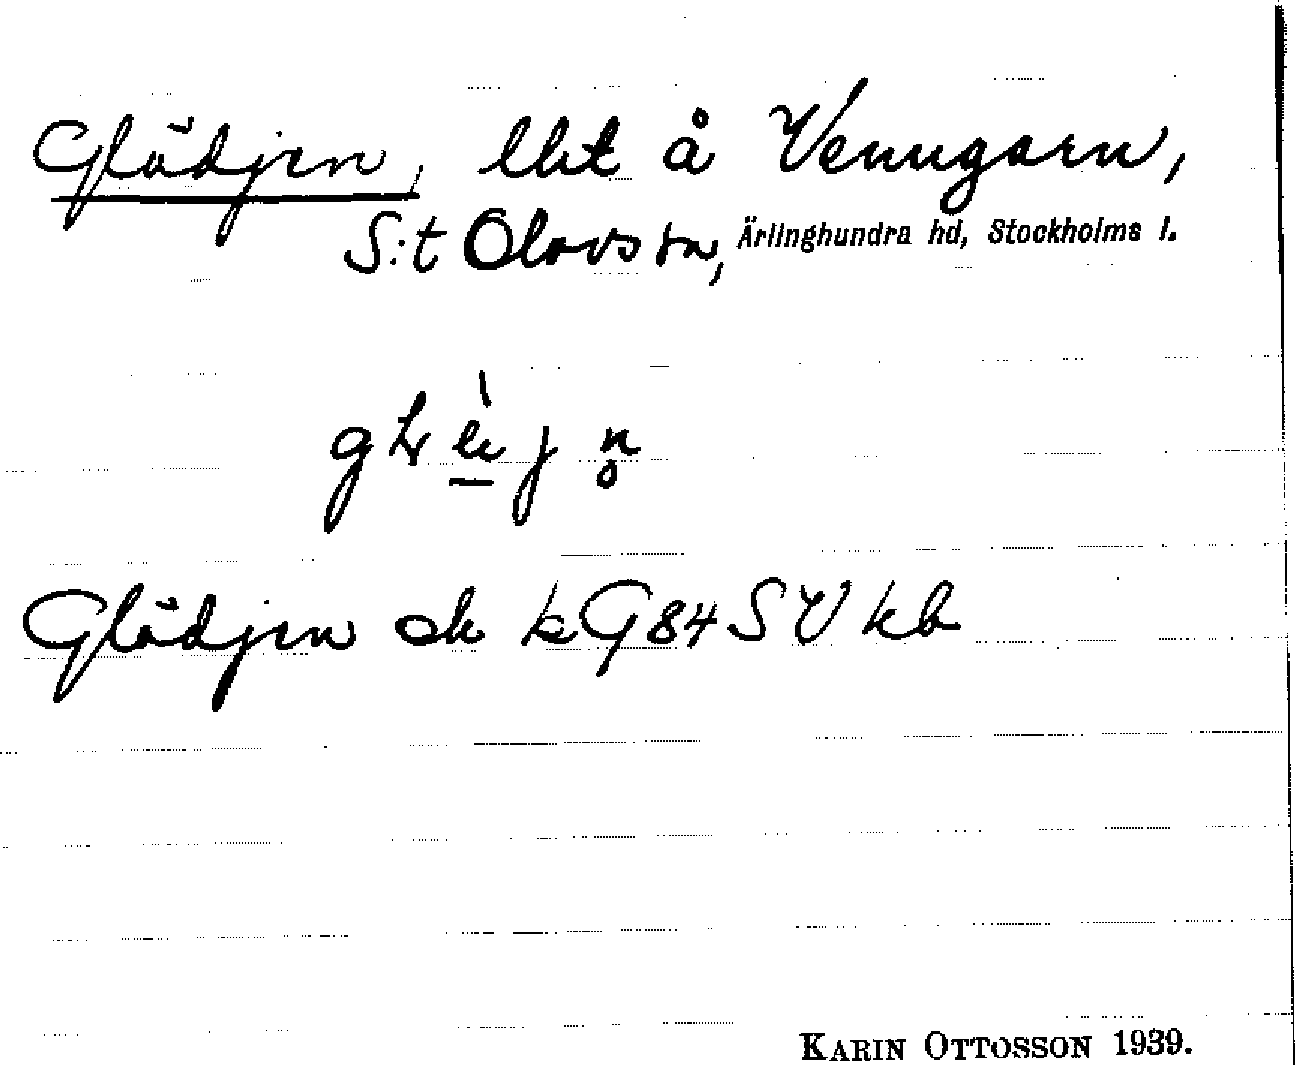 Glädjen, lht å Venngarn,
S:t Olovs sn, Ärlinghundra hd, Stockholms l.
Glädjen ek kG84SV kb
KARIN OTTOSSON 1939.